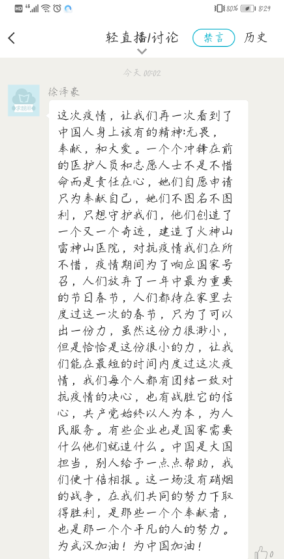 4G
80%
8:29
轻直播/讨论
禁言
历史
今天 00:02
徐泽豪
这次疫情，让我们再一次看到了
中国人身上该有的精神:无畏，
奉献，和大爱。一个个冲锋在前
的医护人员和志愿人士不是不惜
命而是责任在心，她们自愿申请
只为奉献自己，她们不图名不图
利，只想守护我们，他们创造了
一个又一个奇迹，建造了火神山
雷神山医院，对抗疫情我们在所
不惜，疫情期间为了响应国家号
召，人们放弃了一年中最为重要
的节日春节，人们都待在家里去
度过这一次的春节，只为了可以
出一份力，虽然这份力很渺小，
但是恰恰是这份很小的力，让我
们能在最短的时间内度过这次疫
情，我们每个人都有团结一致对
抗疫情的决心，也有战胜它的信
心，共产党始终以人为本，为人
民服务。有些企业也是国家需要
什么他们就造什么。中国是大国
担当，别人给予一点点帮助，我
们便十倍相报。这一场没有硝烟
的战争，在我们共同的努力下取
得胜利，是那些一个个奉献者，
也是那一个个平凡的人的努力。
为武汉加油！为中国加油！
0